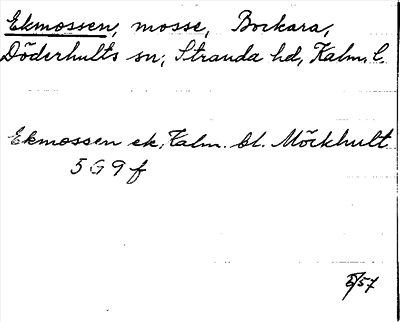 Ekmossen, mosse, Bockara,
Döderhults sn, Stranda hd, Kalm. l.
Ekmossen ek. Kalm. bl. Möckhult
5 G 9 f
5/57